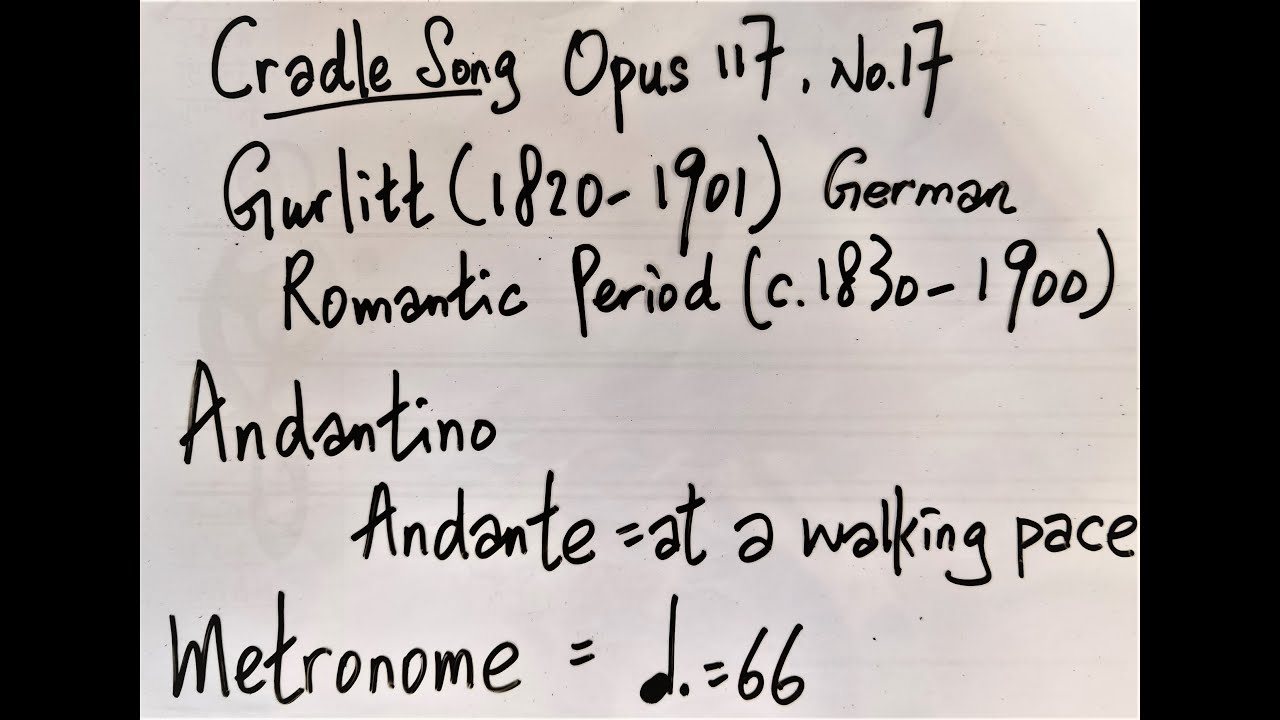 Cradle Song Opus 117, No.17
Gurlitt (1820-1901) German
Romantic Period (c.1830-1900)
Andantino
Andante = at a walking pace
Metronome = ♩. = 66